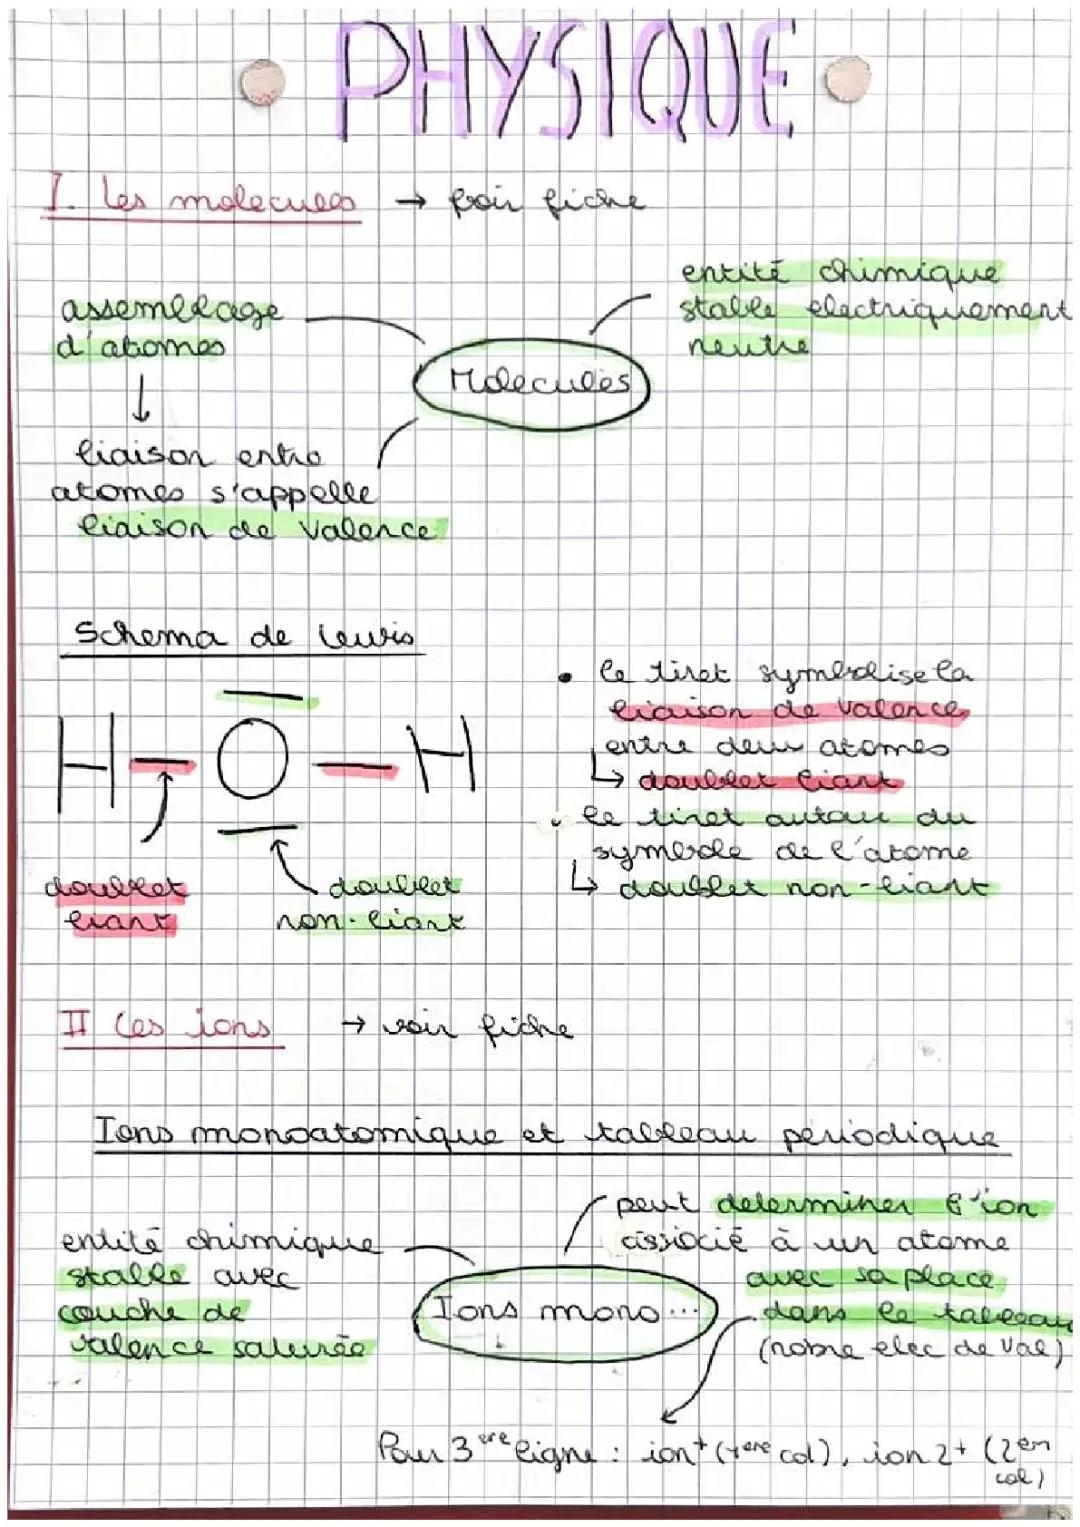 PHYSIQUE
I. les molecules → voir fiche
entité chimique
stable electriquement
neutre
assemblage
d'atomes
Molecules
liaison entre
atomes s'appelle
liaison de valence
Schema de lewis
H - O - H
doublet
liant
doublet
non-liant
• le tiret symbolise la
liaison de valence
entre deux atomes
↳ doublet liant
• le tiret autour du
symbole de l'atome
↳ doublet non-liant
II les ions → voir fiche
Ions monoatomique et tableau périodique
entité chimique
stable avec
couche de
valence saturée
Ions mono...
peut determiner l'ion
associé à un atome
avec sa place
dans le tableau
(nobre elec de val)
Pour 3ere ligne : ion+ (1ere col), ion 2+ (2em
col)